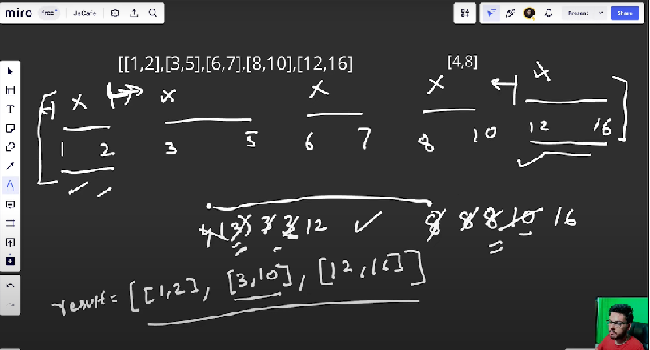 miro free JsCode Present Share
[[1,2],[3,5],[6,7],[8,10],[12,16]] [4,8]
x x x x x
1 2 3 5 6 7 8 10 12 16
4 3 3 3 12 8 8 8 10 16
result = [[1,2], [3,10], [12,16]]